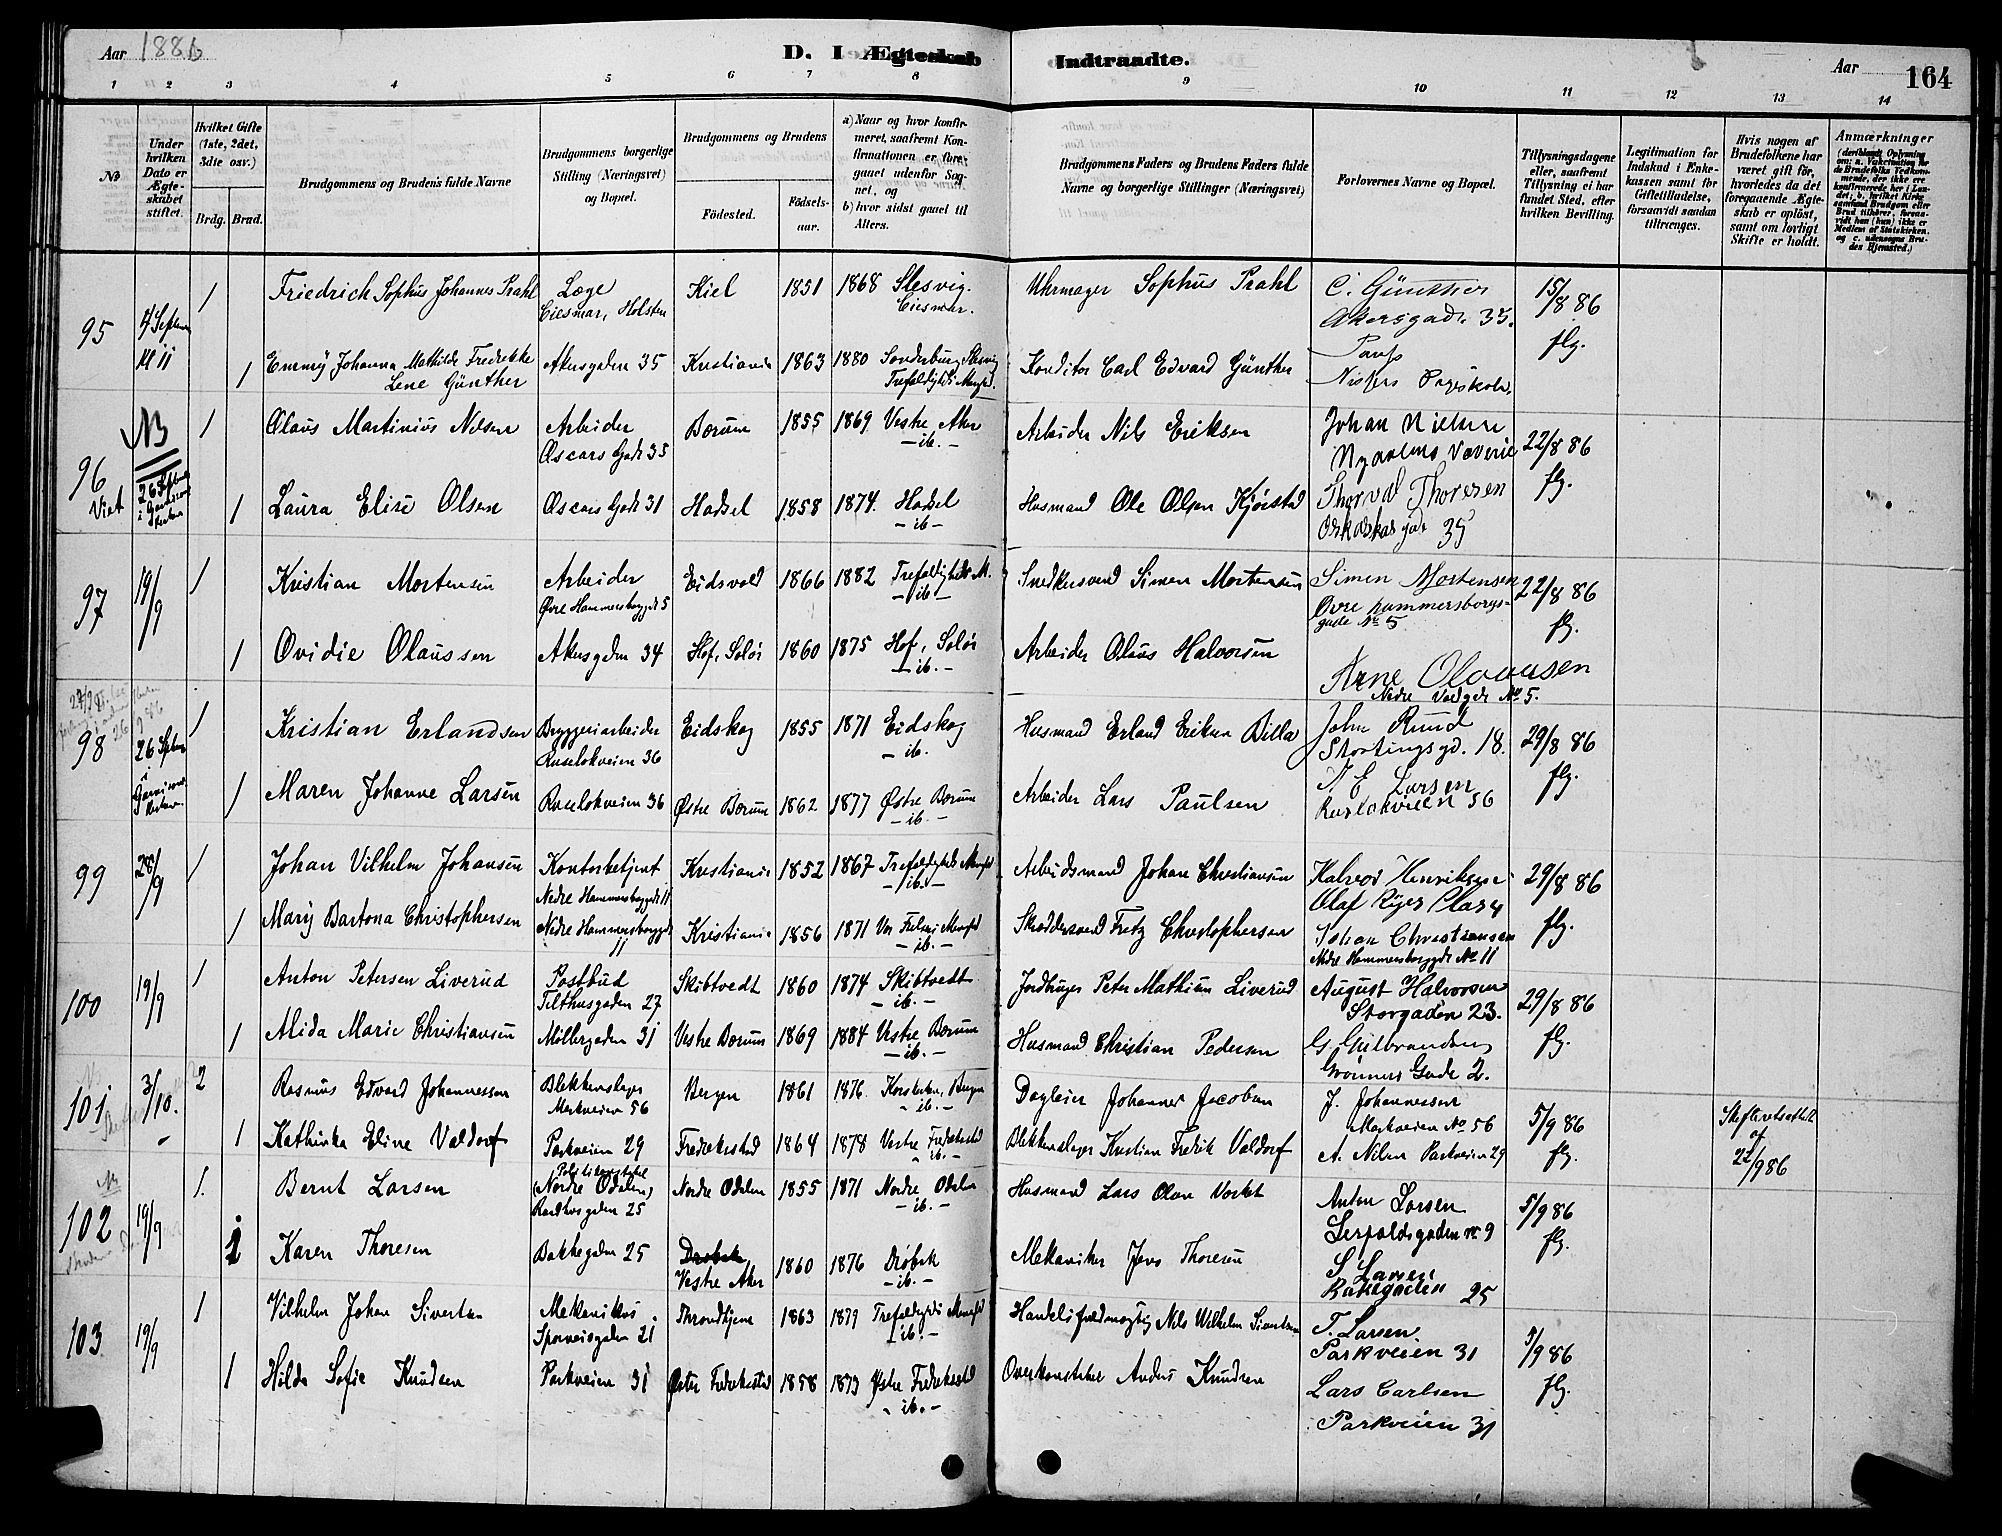 Aar 1886
D. I Ægteskab Indtraadte.
Aar
164
1 2 3 4 5 6 7 8 9 10 11 12 13 14
No
Under hvilken Dato er Ægteskabet stiftet.
Hvilket Gifte (1ste, 2det, 3die osv.)
Brdg. Brud.
Brudgommens og Brudens fulde Navne
Brudgommens borgerlige Stilling (Næringsvei) og Bopæl.
Brudgommens og Brudens
Födested.
Födsels-aar.
a) Naar og hvor konfirmeret, saafremt Konfirmationen er foregaaet udenfor Sognet, og
b) hvor sidst gaaet til Alters.
Brudgommens Faders og Brudens Faders fulde Navne og borgerlige Stillinger (Næringsvei)
Forlovernes Navne og Bopæl.
Tillysningsdagene eller, saafremt Tillysning ei har fundet Sted, efter hvilken Bevilling.
Legitimation for Indskud i Enkekassen samt for Giftetilladelse, forsaavidt saadan tiltrænges.
Hvis nogen af Brudefolkene har været gift för, hvorledes da det foregaaende Ægteskab er oplöst, samt om lovligt Skifte er holdt.
Anmærkninger
95
1 Friedrich Sophus Johannes Prahl Læge Kiel 1851 1868 Slesvig. Uhrmager Sophus Prahl C. Günther 15/8 86
Ciesmar, Holsten Ciesmar. Akersgade 35.
1 Emmy Johanna Mathilde Fredrikke Akersgaden 35 Kristiania 1863 1880 Sonderburg, Slesvig Konditor Carl Edvard Günther flg.
Lene Günther Trefoldigheds Menighed.
NB
96
Viet
26 Septbr
1 Olaus Martinius Nilsen Arbeider Bærum 1855 1869 Vestre Aker Arbeider Nils Eriksen Johan Nielsen 22/8 86
Oscars Gade 35 - ib. - Nydalens Væverie
1 Laura Elise Olsen Oscars Gade 31 Hadsel 1858 1874. Hadsel Husmand Ole Olsen Kjørstad Thorval Thoresen flg.
- ib - 35
97 19/9
1 Kristian Mortensen Arbeider Eidsvold 1866 1882 Trefoldigheds M. Snedkersvend Simen Mortensen Simen Mortensen 22/8 86
Øvre Hammersborggd 5 - ib - Øvre hammersborgs-
gade No 5
1 Ovidie Olaussen Akersgaden 34 Hof, Solør 1860 1875 Hof, Solør Arbeider Olaus Halvorsen flg.
- ib. - Arne Olaussen
Nedre Voldgde No 5.
98
26 Septbr
1 Kristian Erlandsen Bryggeriarbeider Eidskog 1855 1871 Eidskog Husmand Erland Eriksen Billa John Ruud 29/8 86
Ruseløkveien 36 - ib. Stortingsgd. 18.
1 Maren Johanne Larsen Ruseløkveien 36 Østre Bærum 1862 1877 Østre Bærum Arbeider Lars Paulsen Larsen flg.
- ib. - Ruseløkveien 56
99 28/9
1 Johan Vilhelm Johansen Kontorbetjent Kristiania 1852 1867 Trefoldigheds Menighed Arbeidsmand Johan Christiansen Halvor Henriksen 29/8 86
Nedre Hammersborggde 11 - ib. - Olaf Ryes Plads 4
1 Mary Bartona Christophersen Nedre Hammersborggde 11 Kristiania 1856 1871 Vor Frelsers Menighed Skræddersvend Fretz Christophersen Johan Christiansen flg.
- ib. - Nedre Hammersborggde No 11
100 19/9
1 Anton Petersen Liverud Postbud Skibtvedt 1860 1874 Skibtvedt Jordbruger Peter Mathisen Liverud August Halvorsen 29/8 86
Tilthusgaden 27 - ib. - Storgaden 23.
1 Alida Marie Christiansen Møllergaden 31 Vestre Bærum 1869 1884 Vestre Bærum Husmand Christian Pedersen G. Gulbrandsen flg.
- ib. - Grönners Gade 2.
101 3/10.
2 Rasmus Edvard Johannessen Blikkenslager Bergen 1861 1876. Korskirken, Bergen Dagleier Johannes Jacobsen J. Johannessen 5/9 86
Markveien 56 - ib. - Markveien No 56
1 Kathinka Eline Valdorf Parkveien 29 Fredrikstad 1864 1878 Vestre Fredrikstad Blikkenslager Kristian Fredrik Valdorf A. Nilsen Parkveien 29 flg.
- ib. -
Skifteretsattest af 22/9 86
NB
102 19/9
1. Bernt Larsen Politikonstabel Nordre Odalen 1855 1871 Nordre Odalen Husmand Lars Olsen Anton Larsen 5/9 86
(Nordre Odalen) - ib. -
Raadhusgaden 25
1 Karen Thoresen Bakkegaden 25 Drøbak 1860 1876 Drøbak Mekaniker Jens Thoresen S. Larsen flg.
Vestre Aker - ib. - Bakkegaden 25
103 19/9
1 Vilhelm Johan Sivertsen Mekanikus Throndhjem 1863 1879 Trefoldigheds Menighed Handelsfuldmægtig Nils Wilhelm Sivertsen T. Larsen. 5/9 86
Sporveisgaden 21 - ib. - Parkveien 31
1 Hilda Sofie Knudsen Parkveien 31 Østre Fredrikstad 1858 1873 Østre Fredrikstad Overkonstabel Anders Knudsen Lars Carlsen flg.
- ib. - Parkveien 31